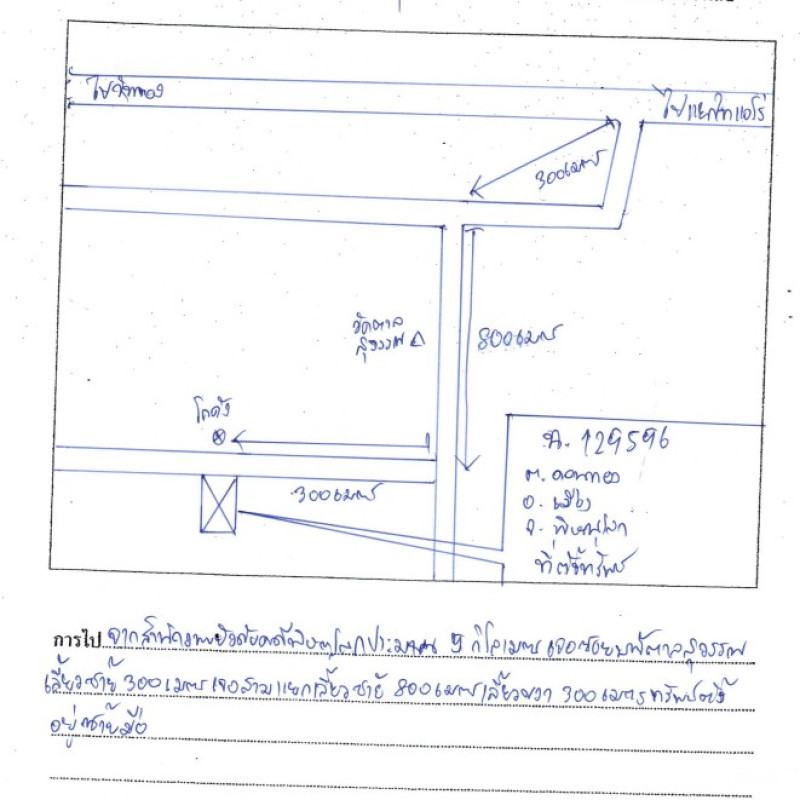 ไปวังทอง
ไปแยกอินโดจีน
300 เมตร
วัดตาล
สุวรรณ
800 เมตร
โกดัง
300 เมตร
ฉ. 129596
ต. ดอนทอง
อ. เมือง
จ. พิษณุโลก
ที่ตั้งทรัพย์
การไป จากสำนักงานบังคับคดีพิษณุโลกประมาณ 9 กิโลเมตร เจอซอยวัดตาลสุวรรณ
เลี้ยวซ้าย 300 เมตร เจอสามแยกเลี้ยวซ้าย 800 เมตร เลี้ยวขวา 300 เมตร ทรัพย์ตั้ง
อยู่ซ้ายมือ